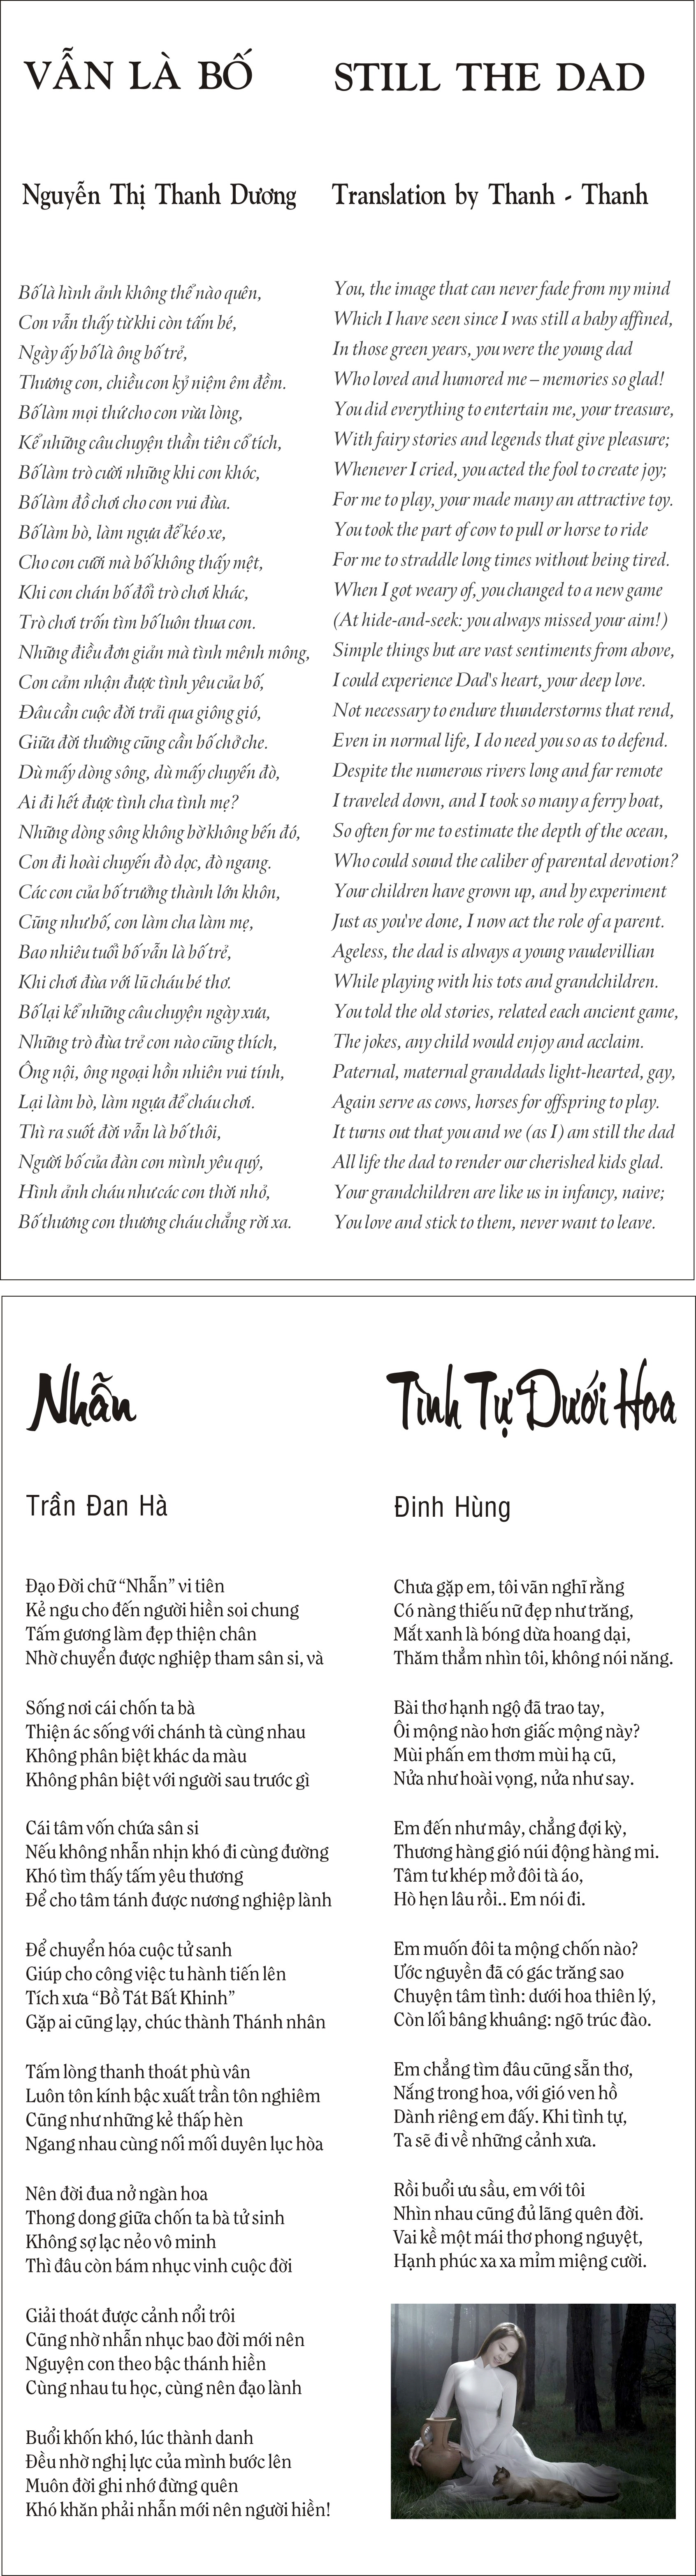 VẪN LÀ BỐ
Nguyễn Thị Thanh Dương
Bố là hình ảnh không thể nào quên,
Con vẫn thấy từ khi còn tấm bé,
Ngày ấy bố là ông bố trẻ,
Thương con, chiều con kỷ niệm êm đềm.
Bố làm mọi thứ cho con vừa lòng,
Kể những câu chuyện thần tiên cổ tích,
Bố làm trò cười những khi con khóc,
Bố làm đồ chơi cho con vui đùa.
Bố làm bò, làm ngựa để kéo xe,
Cho con cưỡi mà bố không thấy mệt,
Khi con chán bố đổi trò chơi khác,
Trò chơi trốn tìm bố luôn thua con.
Những điều đơn giản mà tình mênh mông,
Con cảm nhận được tình yêu của bố,
Đâu cần cuộc đời trải qua giông gió,
Giữa đời thường cũng cần bố chở che.
Dù mấy dòng sông, dù mấy chuyến đò,
Ai đi hết được tình cha tình mẹ?
Những dòng sông không bờ không bến đó,
Con đi hoài chuyến đò dọc, đò ngang.
Các con của bố trưởng thành lớn khôn,
Cũng như bố, con làm cha làm mẹ,
Bao nhiêu tuổi bố vẫn là bố trẻ,
Khi chơi đùa với lũ cháu bé thơ.
Bố lại kể những câu chuyện ngày xưa,
Những trò đùa trẻ con nào cũng thích,
Ông nội, ông ngoại hồn nhiên vui tính,
Lại làm bò, làm ngựa để cháu chơi.
Thì ra suốt đời vẫn là bố thôi,
Người bố của đàn con mình yêu quý,
Hình ảnh cháu như các con thời nhỏ,
Bố thương con thương cháu chẳng rời xa.
STILL THE DAD
Translation by Thanh - Thanh
You, the image that can never fade from my mind
Which I have seen since I was still a baby affined,
In those green years, you were the young dad
Who loved and humored me – memories so glad!
You did everything to entertain me, your treasure,
With fairy stories and legends that give pleasure;
Whenever I cried, you acted the fool to create joy;
For me to play, your made many an attractive toy.
You took the part of cow to pull or horse to ride
For me to straddle long times without being tired.
When I got weary of, you changed to a new game
(At hide-and-seek: you always missed your aim!)
Simple things but are vast sentiments from above,
I could experience Dad's heart, your deep love.
Not necessary to endure thunderstorms that rend,
Even in normal life, I do need you so as to defend.
Despite the numerous rivers long and far remote
I traveled down, and I took so many a ferry boat,
So often for me to estimate the depth of the ocean,
Who could sound the caliber of parental devotion?
Your children have grown up, and by experiment
Just as you've done, I now act the role of a parent.
Ageless, the dad is always a young vaudevillian
While playing with his tots and grandchildren.
You told the old stories, related each ancient game,
The jokes, any child would enjoy and acclaim.
Paternal, maternal granddads light-hearted, gay,
Again serve as cows, horses for offspring to play.
It turns out that you and we (as I) am still the dad
All life the dad to render our cherished kids glad.
Your grandchildren are like us in infancy, naive;
You love and stick to them, never want to leave.
Nhẫn
Trần Đan Hà
Đạo Đời chữ “Nhẫn” vi tiên
Kẻ ngu cho đến người hiền soi chung
Tấm gương làm đẹp thiện chân
Nhờ chuyển được nghiệp tham sân si, và
Sống nơi cái chốn ta bà
Thiện ác sống với chánh tà cùng nhau
Không phân biệt khác da màu
Không phân biệt với người sau trước gì
Cái tâm vốn chứa sân si
Nếu không nhẫn nhịn khó đi cùng đường
Khó tìm thấy tấm yêu thương
Để cho tâm tánh được nương nghiệp lành
Để chuyển hóa cuộc tử sanh
Giúp cho công việc tu hành tiến lên
Tích xưa “Bồ Tát Bất Khinh”
Gặp ai cũng lạy, chúc thành Thánh nhân
Tấm lòng thanh thoát phù vân
Luôn tôn kính bậc xuất trần tôn nghiêm
Cũng như những kẻ thấp hèn
Ngang nhau cùng nối mối duyên lục hòa
Nên đời đua nở ngàn hoa
Thong dong giữa chốn ta bà tử sinh
Không sợ lạc nẻo vô minh
Thì đâu còn bám nhục vinh cuộc đời
Giải thoát được cảnh nổi trôi
Cũng nhờ nhẫn nhục bao đời mới nên
Nguyện con theo bậc thánh hiền
Cùng nhau tu học, cùng nên đạo lành
Buổi khốn khó, lúc thành danh
Đều nhờ nghị lực của mình bước lên
Muôn đời ghi nhớ đừng quên
Khó khăn phải nhẫn mới nên người hiền!
Tình Tự Dưới Hoa
Đinh Hùng
Chưa gặp em, tôi vẫn nghĩ rằng
Có nàng thiếu nữ đẹp như trăng,
Mắt xanh là bóng dừa hoang dại,
Thăm thẳm nhìn tôi, không nói năng.
Bài thơ hạnh ngộ đã trao tay,
Ôi mộng nào hơn giấc mộng này?
Mùi phấn em thơm mùi hạ cũ,
Nửa như hoài vọng, nửa như say.
Em đến như mây, chẳng đợi kỳ,
Thương hàng gió núi động hàng mi.
Tâm tư khép mở đôi tà áo,
Hò hẹn lâu rồi.. Em nói đi.
Em muốn đôi ta mộng chốn nào?
Ước nguyền đã có gác trăng sao
Chuyện tâm tình: dưới hoa thiên lý,
Còn lối bâng khuâng: ngõ trúc đào.
Em chẳng tìm đâu cũng sẵn thơ,
Nắng trong hoa, với gió ven hồ
Dành riêng em đấy. Khi tình tự,
Ta sẽ đi về những cảnh xưa.
Rồi buổi ưu sầu, em với tôi
Nhìn nhau cũng đủ lãng quên đời.
Vai kề một mái thơ phong nguyệt,
Hạnh phúc xa xa mỉm miệng cười.